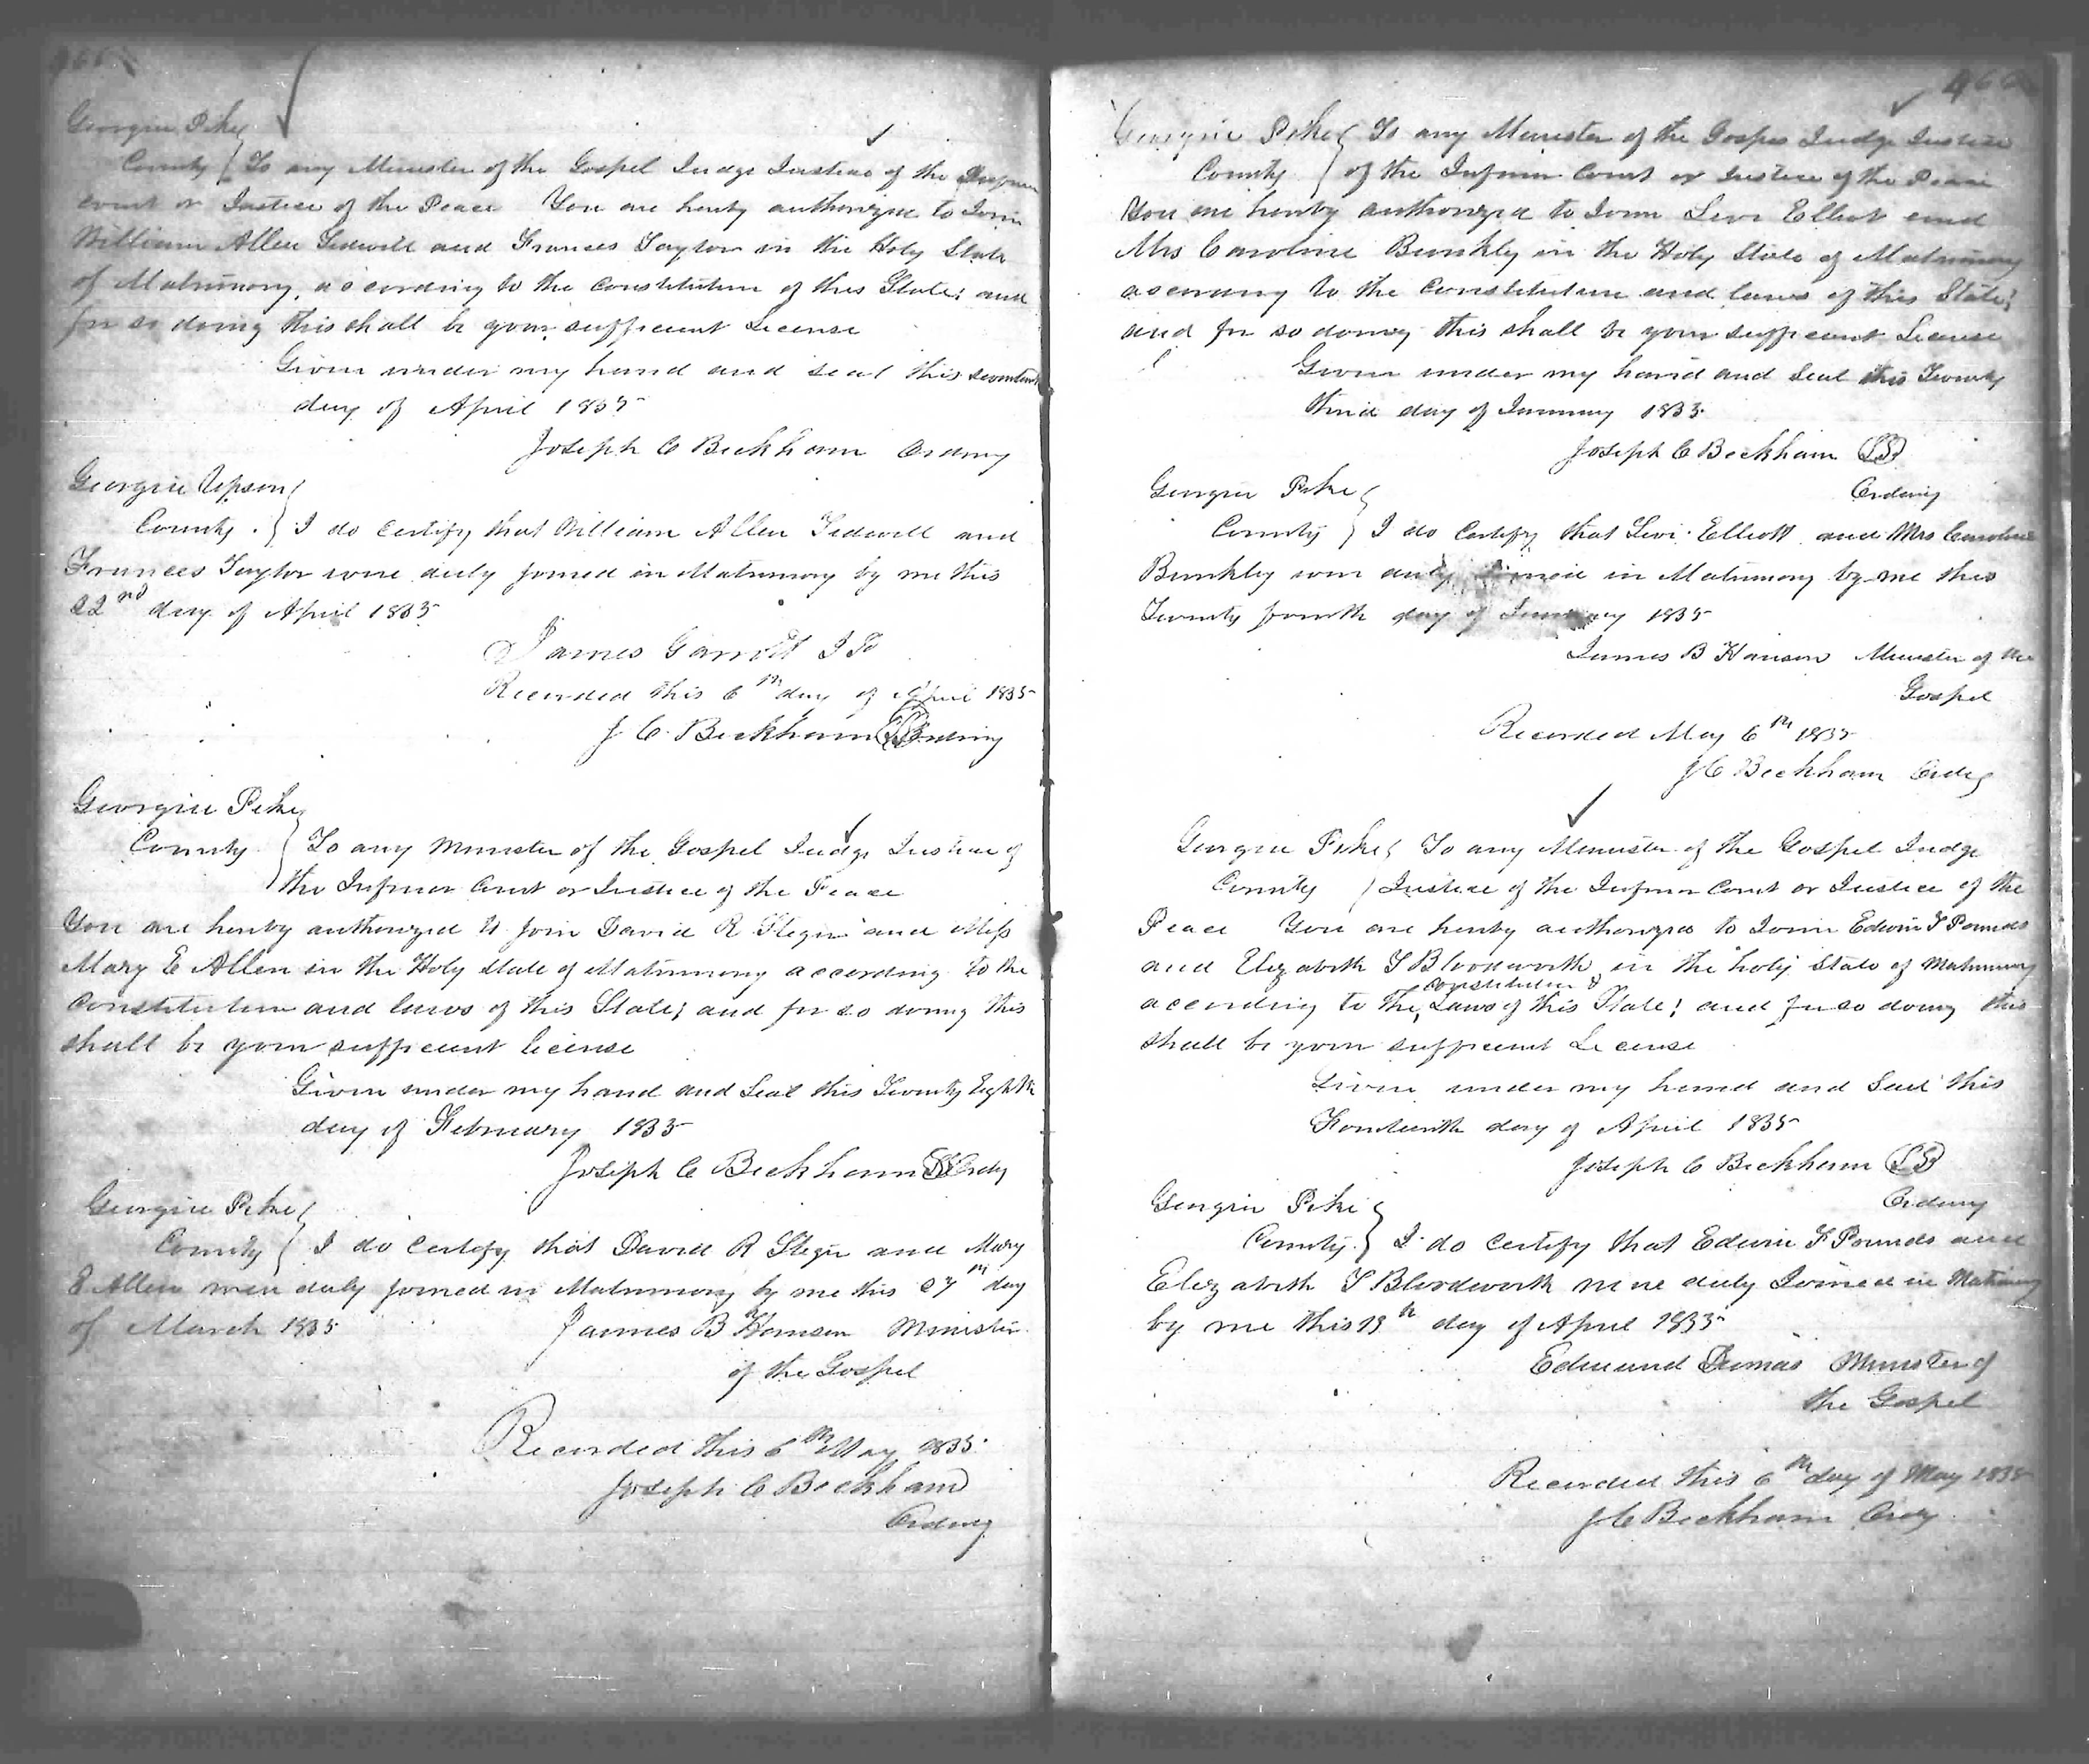 Georgia Pike
County } To any Minister of the Gospel Judge Justice of the Inferior
court or Justice of the Peace You are hereby authorized to Join
William Allen Tidwell and Frances Taylor in the Holy State
of Matrimony, according to the constitution of this State; and
for so doing this shall be your sufficient License
Given under my hand and seal this
day of April 1835
Joseph C Beckham Ordny
Georgia Upson
County. } I do certify that William Allen Tidwell and
Frances Taylor were duly joined in Matrimony by me this
22nd day of April 1835
James Garrett J P
Recorded this 6th day of April 1835
J. C. Beckham LS Ordiny
Georgia Pike
County } To any Minister of the Gospel Judge Justice of
the Inferior Court or Justice of the Peace
You are hereby authorized to join David R and Miss
Mary E Allen in the Holy State of Matrimony according to the
constitution and laws of this State; and for so doing this
shall be your sufficient license
Given under my hand and Seal this Twenty Eighth
day of February 1835
Joseph C Beckham LS Ordy
Georgia Pike
County } I do certify that David R and Mary
E Allen were duly joined in Matrimony by me this 27th day
of March 1835 James B Minister
of the Gospel
Recorded this 6th May 1835
Joseph C Beckham
Ordny
466
Georgia Pike } To any Minister of the Gospel Judge Justice
County } of the Inferior Court or Justice of the Peace
You are hereby authorized to Join Levi Elliot and
Mrs Caroline Bunkley in the Holy State of Matrimony
according to the constitution and laws of this State;
and for so doing this shall be your sufficient License
Given under my hand and Seal this Twenty
third day of January 1835
Joseph C Beckham LS
Ordiny
Georgia Pike
County } I do certify that Levi Elliott and Mrs Caroline
Bunkley were duly in Matrimony by me this
Twenty fourth day of January 1835
James B Minister of the
Gospel
Recorded May 6th 1835
J C Beckham Ordy
Georgia Pike } To any Minister of the Gospel Judge
County } Justice of the Inferior Court or Justice of the
Peace You are hereby authorized to Join Edwin F Pounds
and Elizabeth S Bloodworth in the holy State of Matrimony
constitution &
according to the Laws of this State; and for so doing this
shall be your sufficient License
Given under my hand and Seal this
Fourteenth day of April 1835
Joseph C Beckham LS
Ordiny
Georgia Pike
County. } I do certify that Edwin F Pounds and
Elizabeth S Bloodworth were duly Joined in Matrimony
by me this 15th day of April 1835
Edmund Dumas Minister of
the Gospel
Recorded this 6th day of May 1835
J C Beckham Ordy